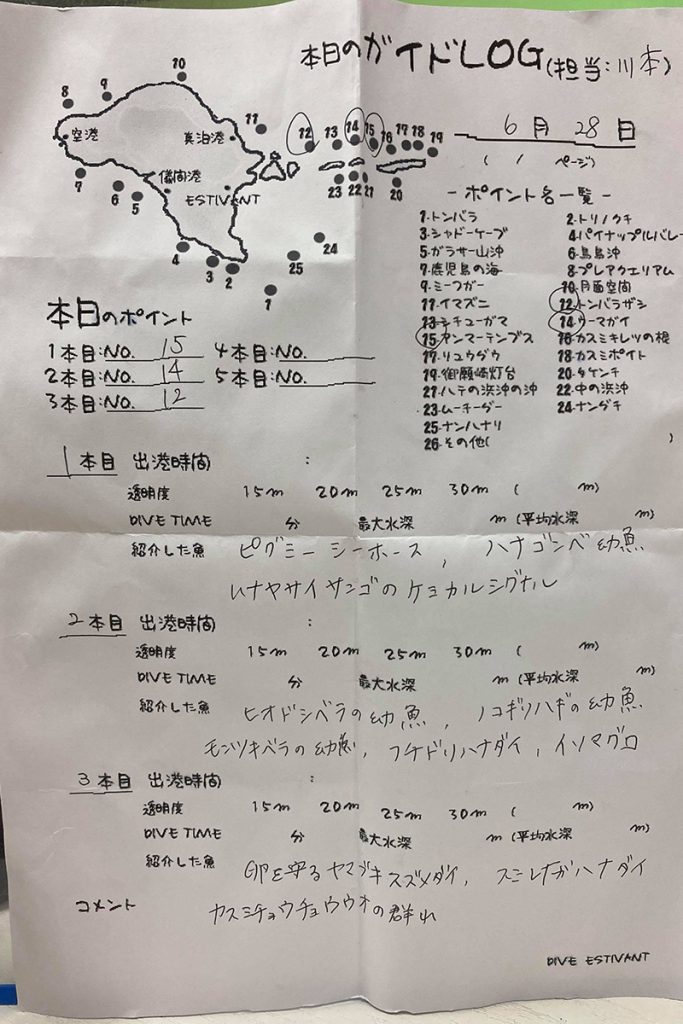 本日のガイドLOG(担当:川本)
6月28日
( / ページ)
8 9 10 11 12 13 14 15 16 17 18 19
空港 真泊港
儀間港
ESTIVANT
7 6 5 4 3 2 1 25 24 23 22 21 20
-ポイント名一覧-
1.トンバラ 2.トリノクチ
3.シャドーケーブ 4.パイナップルバレー
5.ガラサー山沖 6.鳥島沖
7.鹿児島の海 8.プレアクエリアム
9.ミーフガー 10.月面空間
11.イマズニ 12.トンバラザシ
13.シチューガマ 14.ウーマガイ
15.アンマーテンブス 16.カスミキレツの根
17.リュウグウ 18.カスミポイト
19.御願崎灯台 20.タケンチ
21.ハテの浜沖の沖 22.中の浜沖
23.ムーチーグー 24.ナングチ
25.ナンハナリ
26.その他( )
本日のポイント
1本目:NO. 15 4本目:NO.
2本目:NO. 14 5本目:NO.
3本目:NO. 12
1本目 出港時間 :
透明度 15m 20m 25m 30m ( m)
DIVE TIME 分 最大水深 m (平均水深 m)
紹介した魚 ピグミーシーホース, ハナゴンベ幼魚
ハナヤサイサンゴのケミカルシグナル
2本目 出港時間 :
透明度 15m 20m 25m 30m ( m)
DIVE TIME 分 最大水深 m (平均水深 m)
紹介した魚 ヒオドシベラの幼魚, ノコギリハギの幼魚
モンツキベラの幼魚, フチドリハナダイ, イソマグロ
3本目 出港時間 :
透明度 15m 20m 25m 30m ( m)
DIVE TIME 分 最大水深 m (平均水深 m)
紹介した魚 卵を守るヤマブキスズメダイ, スミレナガハナダイ
コメント カスミチョウチョウウオの群れ
DIVE ESTIVANT